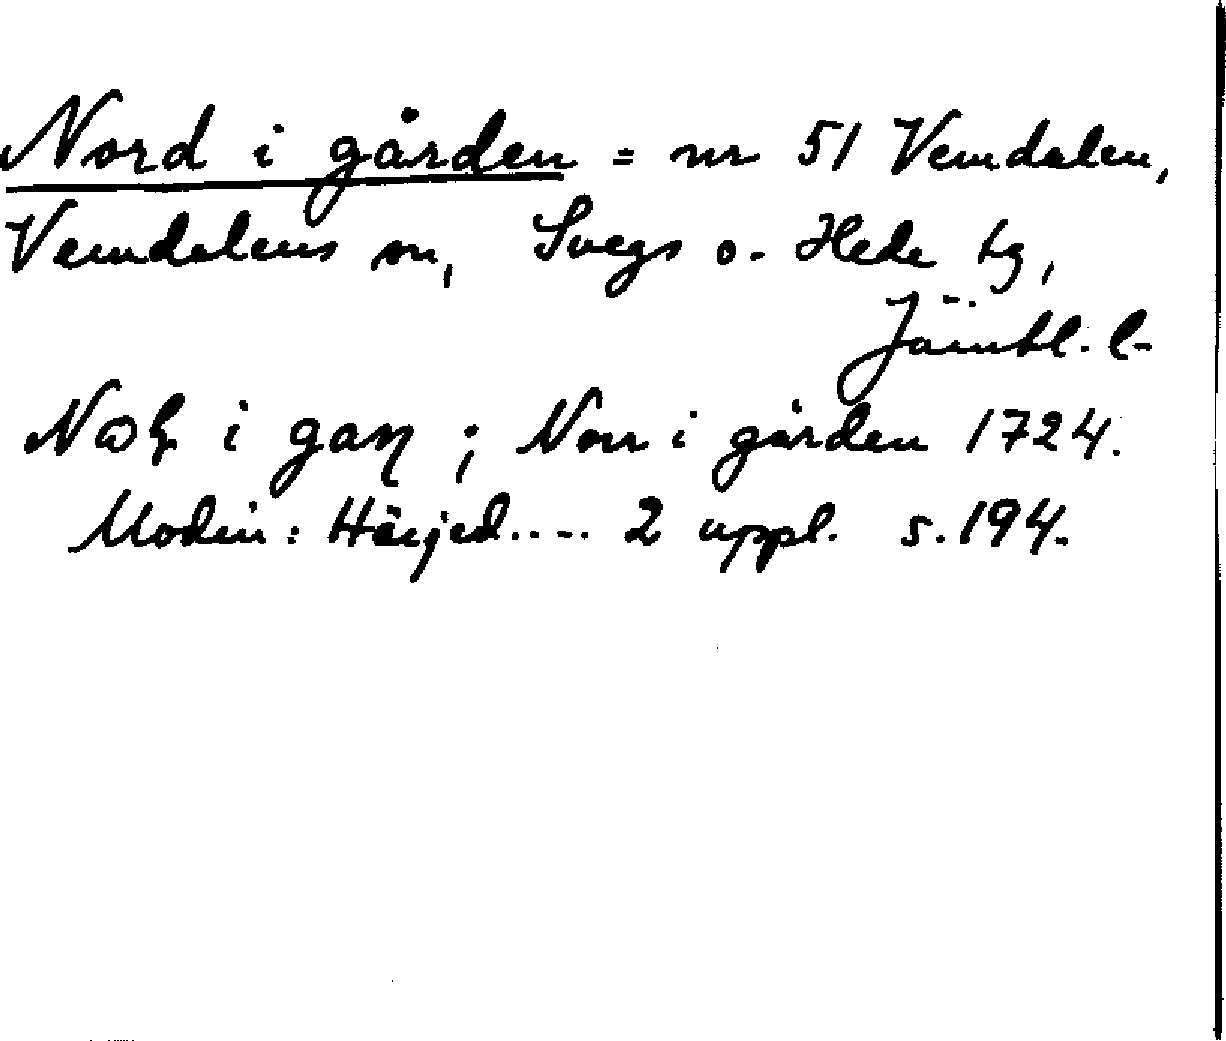 Nord i gården = nr 51 Vemdalen,
Vemdalens sn, Svegs o. Hede tg,
Jämtl. l.
i gaɳ ; Norr i gården 1724.
Modin: Härjed.... 2 uppl. s. 194.